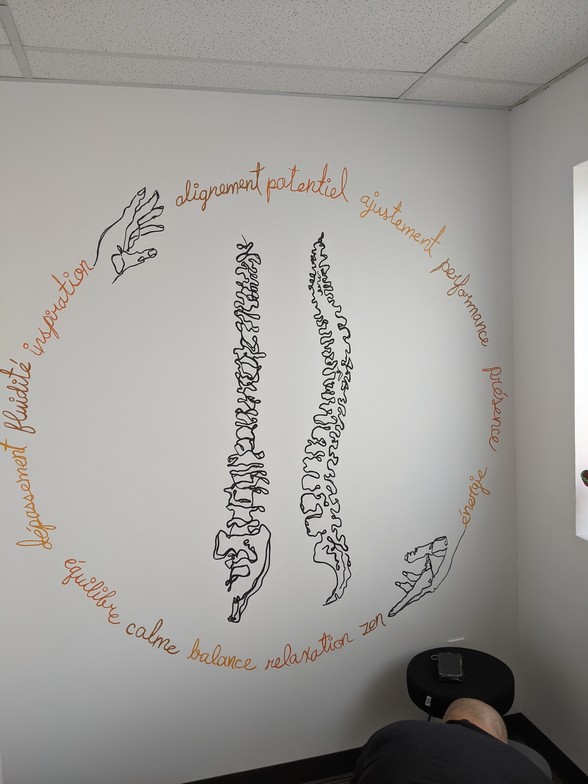 alignement
potentiel
ajustement
performance
présence
énergie
zen
relaxation
balance
calme
équilibre
dépassement
fluidité
inspiration